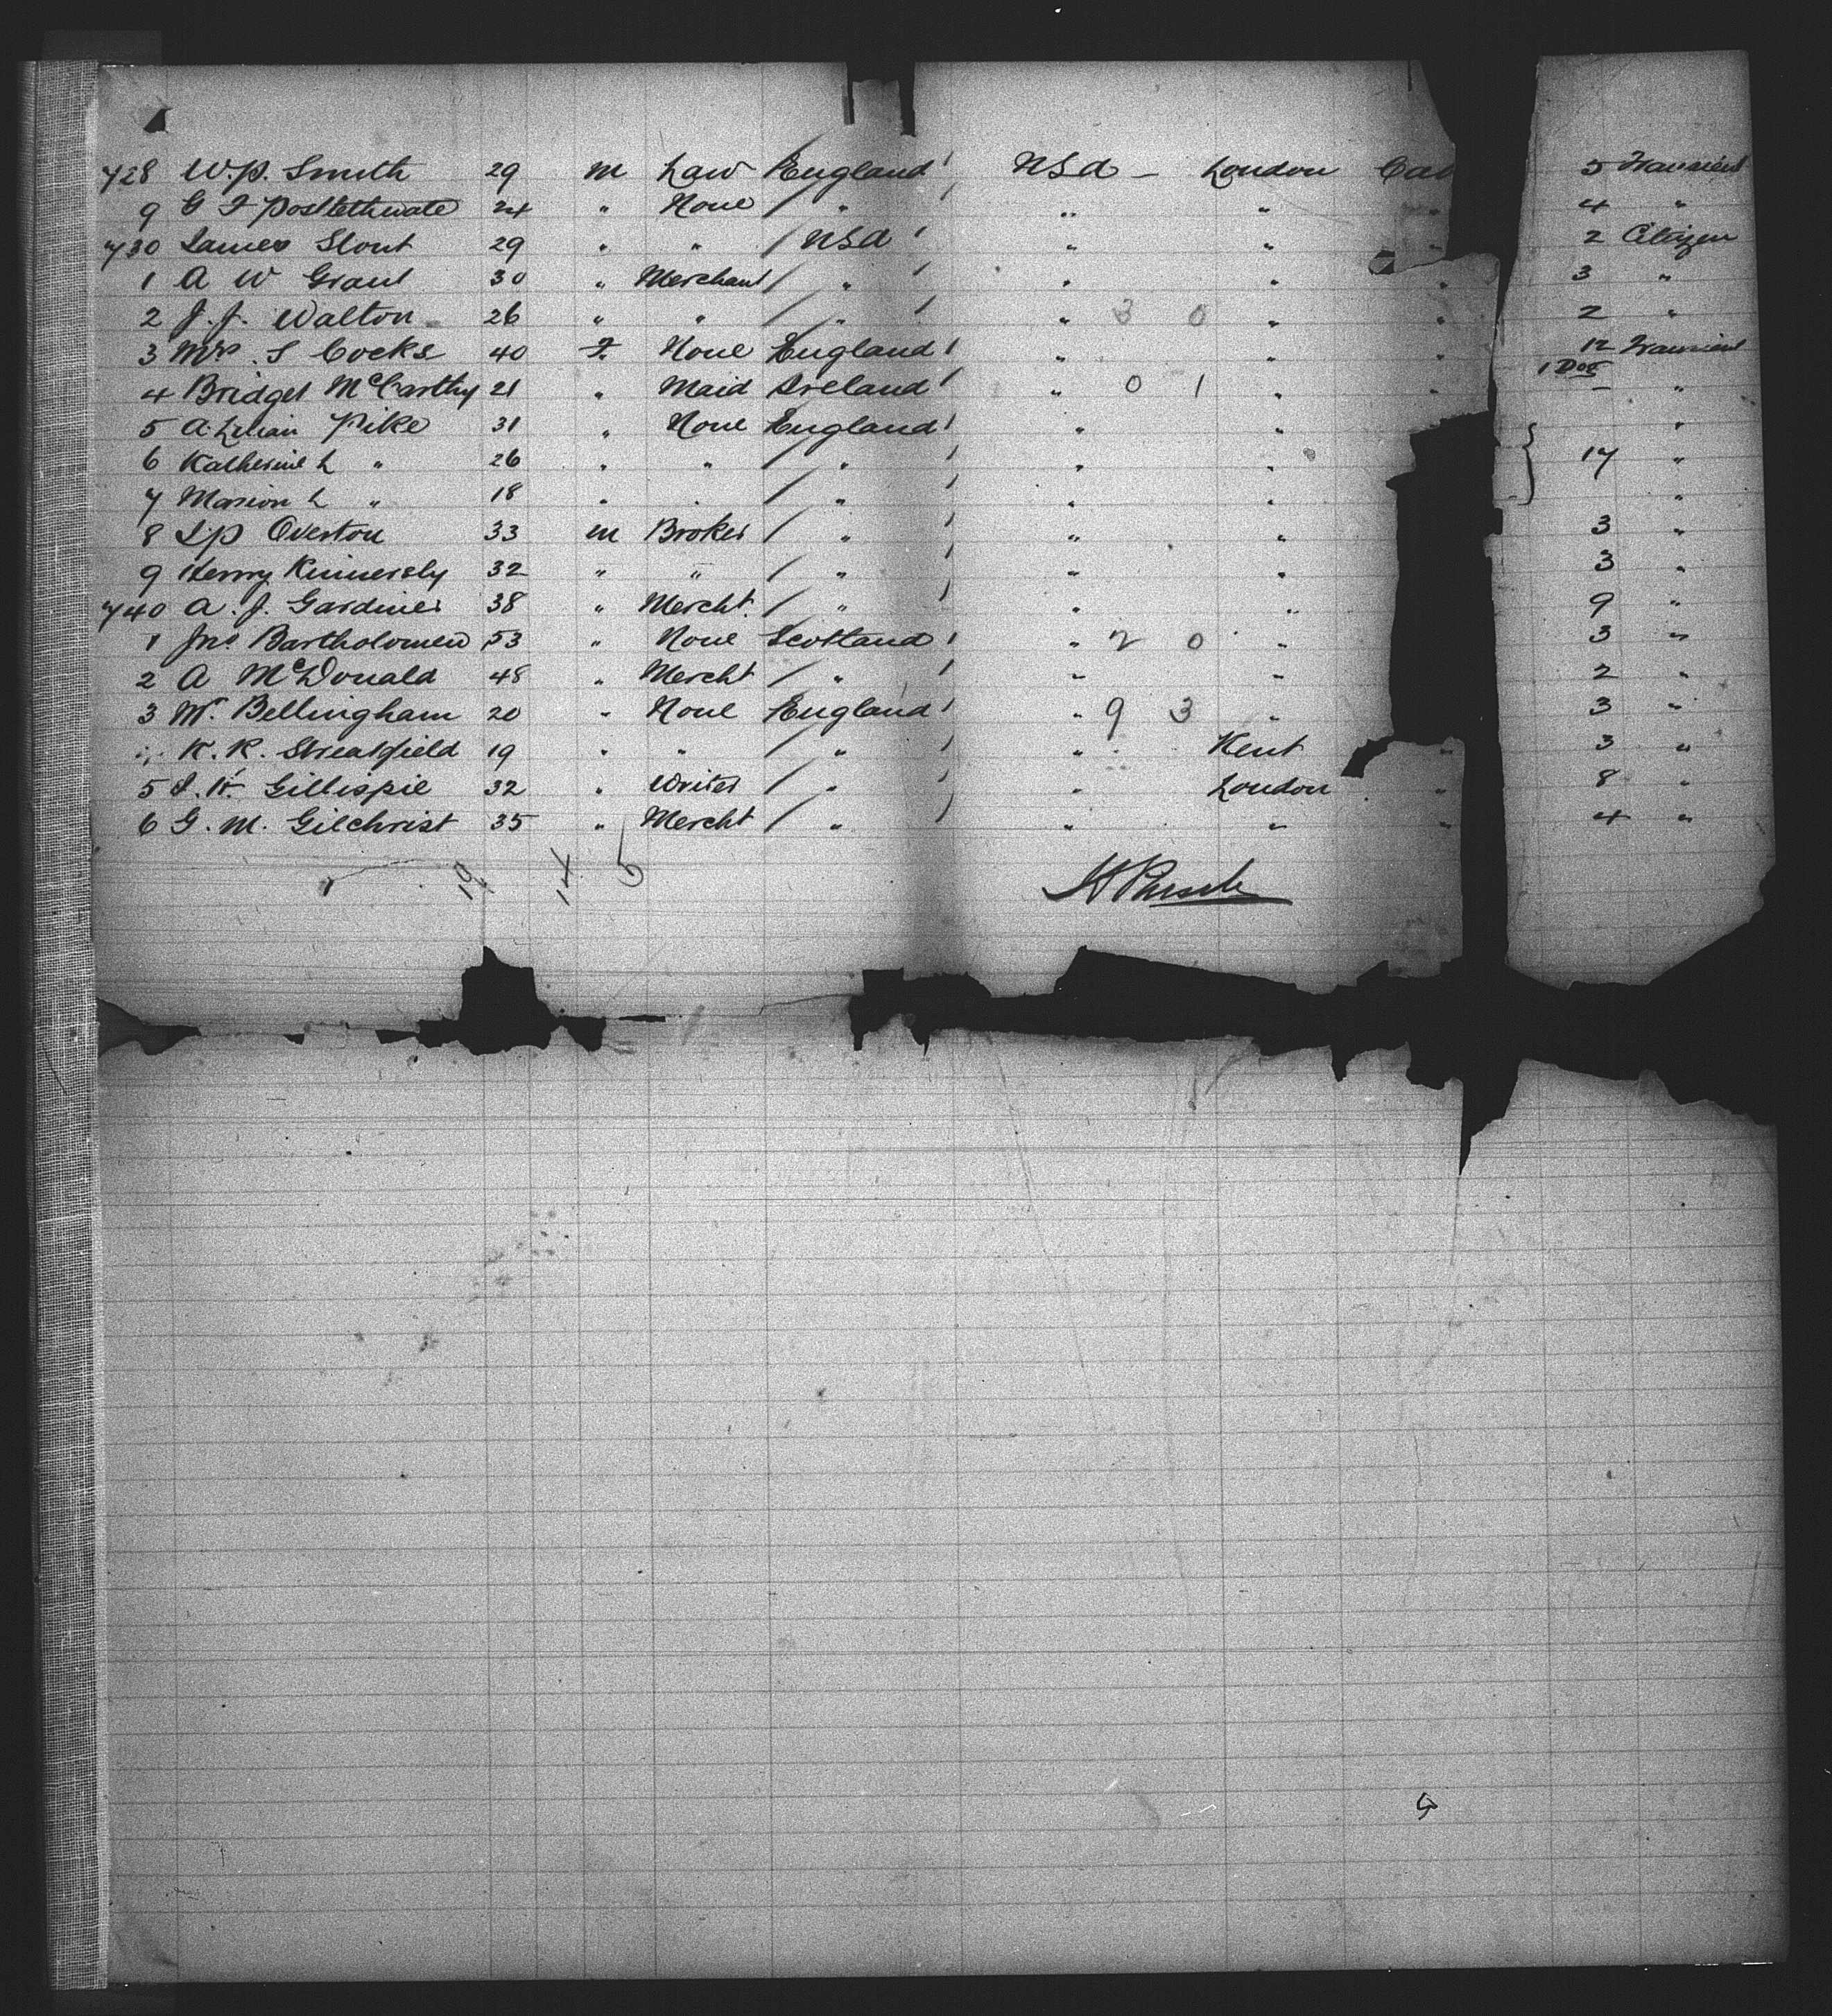 728 W.P. Smith 29 m Law England USA - London Cab 5 Transient
9 G F Postlethwate 24 " None " " " " 4 "
730 James Stout 29 " " USA " " " 2 Citizen
1 A W Grant 30 " Merchant " " " " 3 "
2 J. J. Walton 26 " " " " 3 0 " " 2 "
3 Mrs. S Cocks 40 F. None England " " " 12 Transient
4 Bridget McCarthy 21 " Maid Ireland " 0 1 " " 1 Dog - "
5 A. Lilian Pike 31 " None England " " "
6 Katherine L " 26 " " " " " 17 "
7 Marion L " 18 " " " " " "
8 Overton 33 m Broker " " " 3 "
9 Henry Kinnersly 32 " " " " " 3 "
740 A. J. Gardiner 38 " Mercht. " " " 9 "
1 Jno Bartholomew 53 " None Scotland " 2 0 " 3 "
2 A McDonald 48 " Mercht " " " 2 "
3 W. Bellingham 20 " None England " 9 3 " 3 "
K. R. Streatfield 19 " " " " Kent " 3 "
5 Gillispie 32 " Writer " " London " 8 "
6 G. M. Gilchrist 35 " Mercht " " " " 4 "
19 14 5